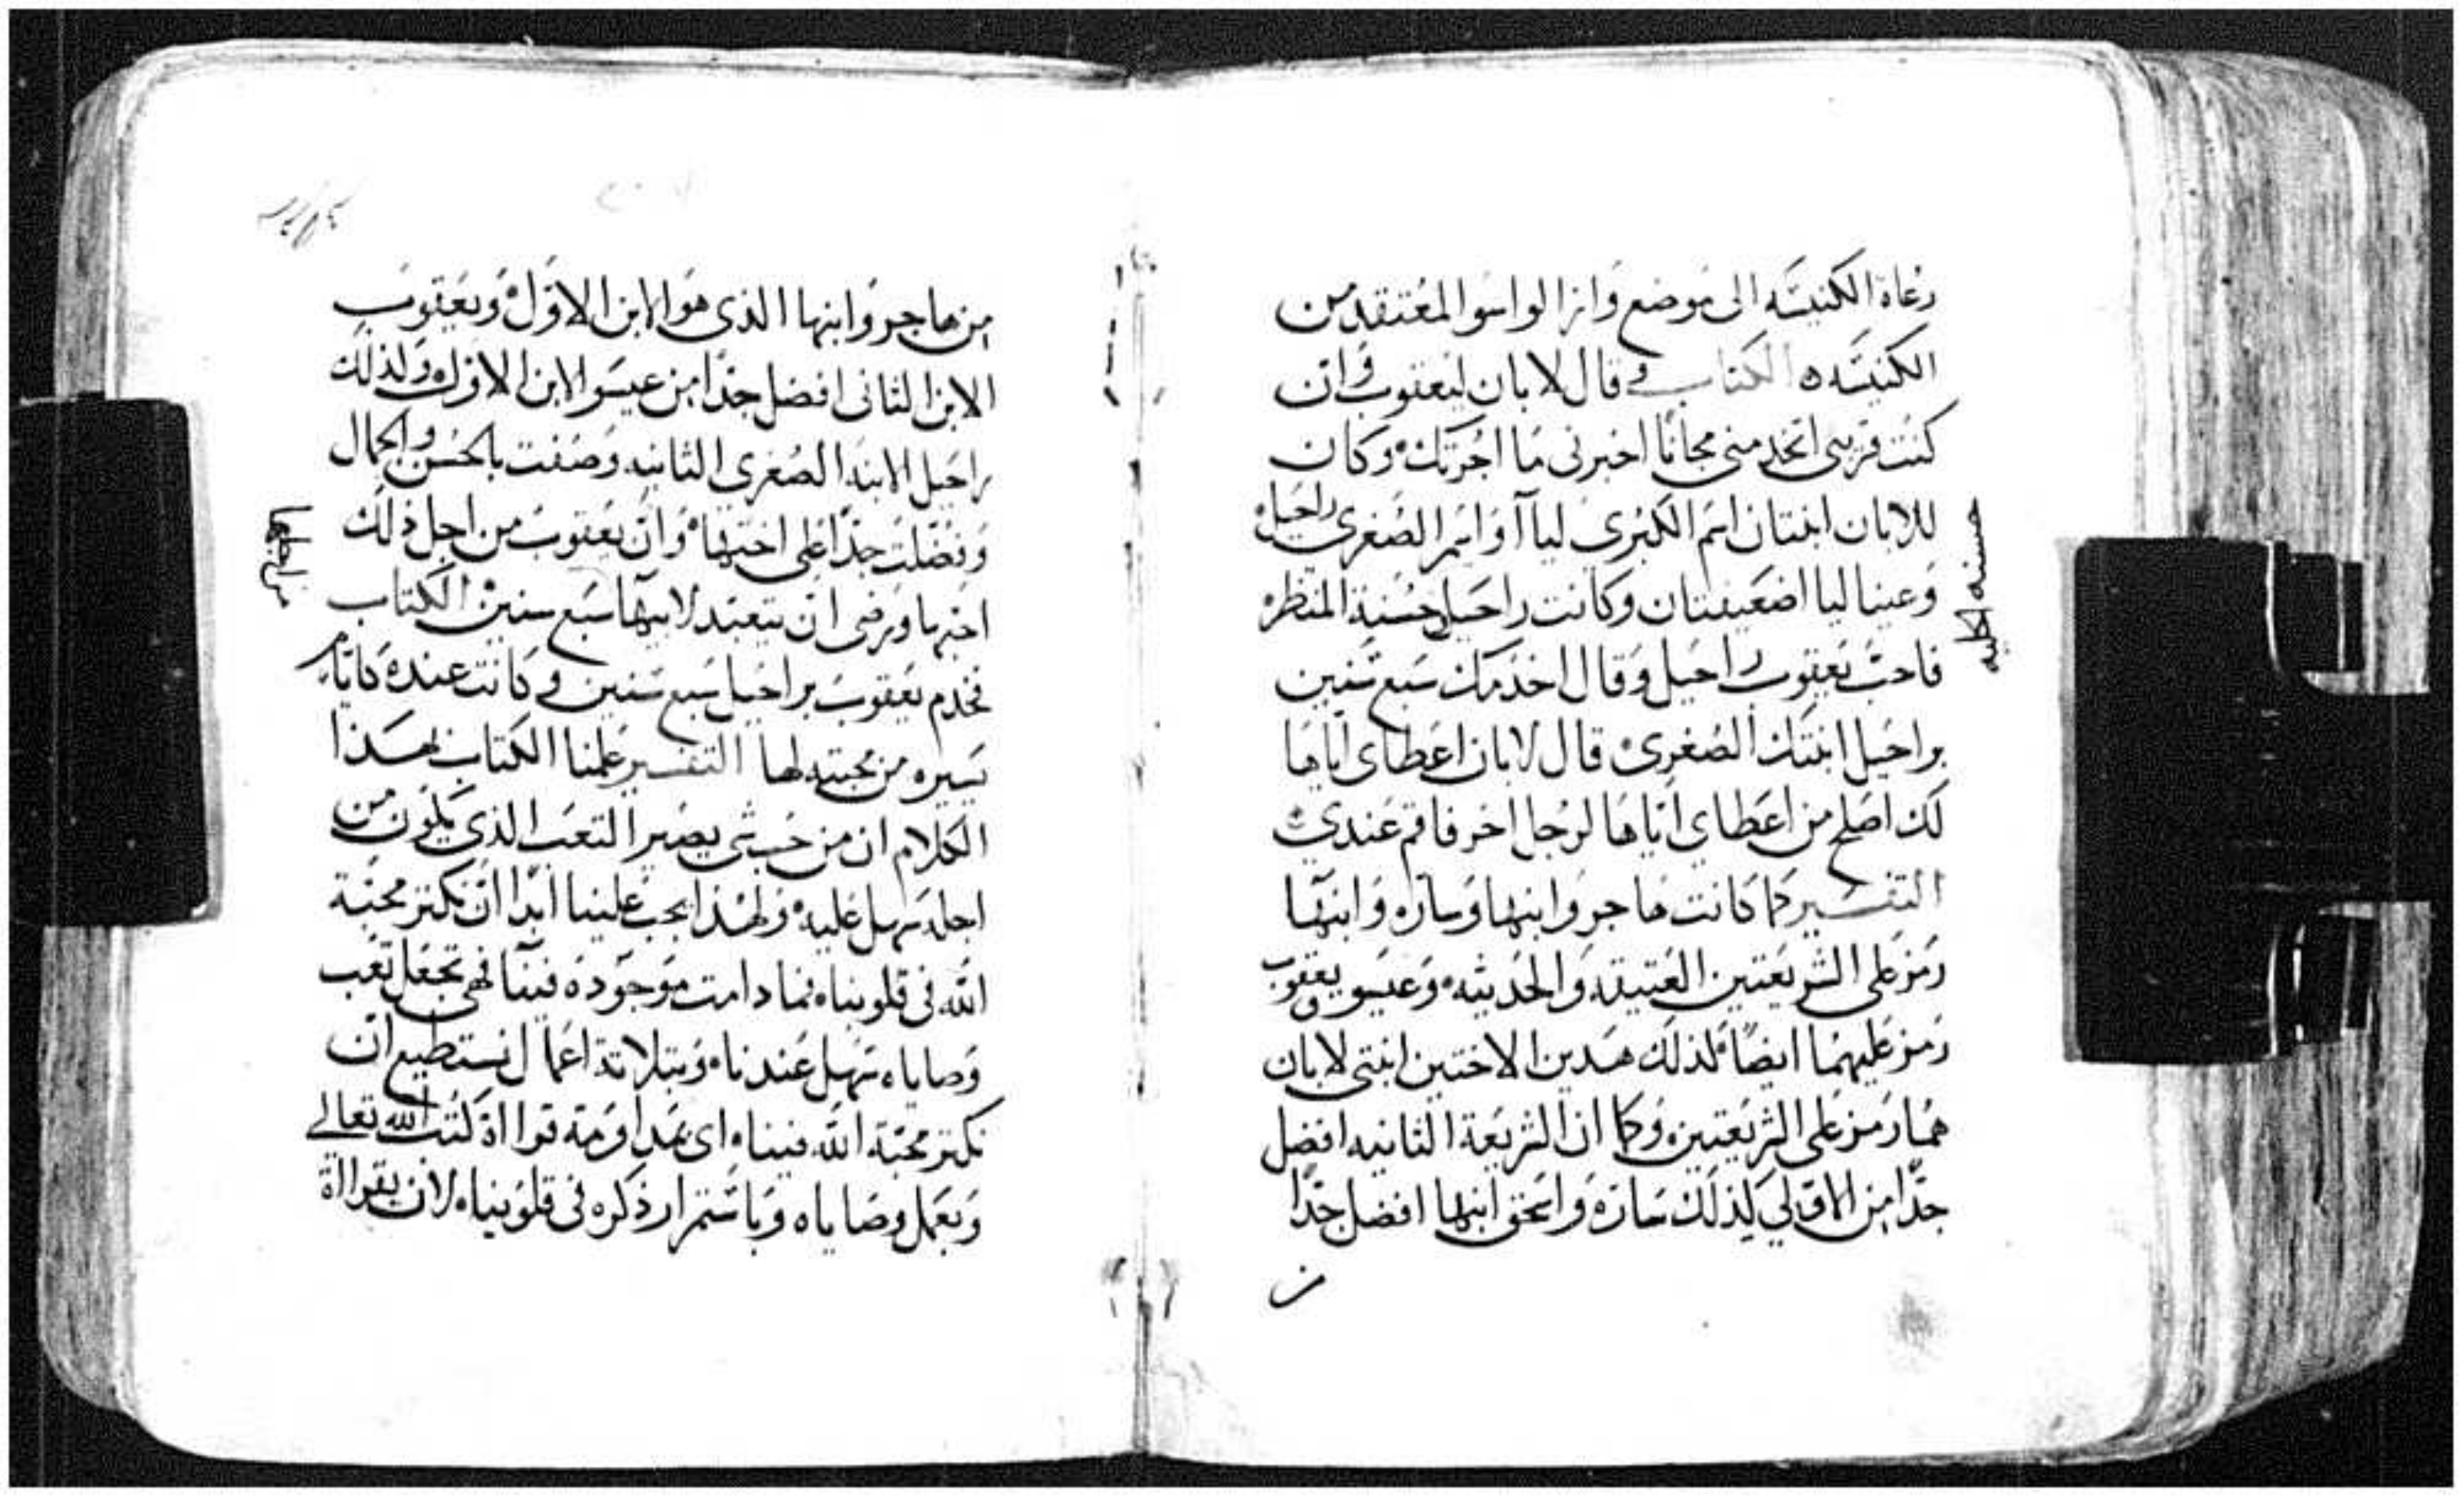 رعاة الكنيسه الى موضع وازالوا سو المعتقد من
الكنيسه ه الكتاب وقال لابان ليعقوب وان
كنت قريبى اتخدمنى مجانا اخبرنى ما اجرتك وكان
للابان ابنتان اسم الكبرى ليا آ واسم الصغرى راحيل
وعينا ليا اضعيفتان وكانت راحيل حسنة المنظر
حسنه الحليه
فاحب يعقوب راحيل وقال اخدمك سبع سنين
براحيل ابنتك الصغرى قال لابان اعطاى اياها
لك اصلح من اعطاى اياها لرجل اخر فاقم عندى
التفسير كما كانت هاجر وابنها وساره وابنها
رمز على الشريعتين العتيقه والحديثه وعيسو ويعقوب
رمز عليهما ايضا لذلك هدين الاختين ابنتى لابان
هما رمز على الشريعتين وكما ان الشريعة الثانيه افضل
جدا من الاولي لذلك ساره واسحق ابنها افضل جدا
من هاجر وابنها الذى هو الابن الاول ويعقوب
الابن الثانى افضل جدا من عيسو الابن الاول ولذلك
راحيل الابنة الصغرى الثانيه وصفت بالحسن والجمال
وفضلت جدا على اختها وان يعقوب من اجل ذلك
من اجلها
احبها ورضى ان يتعبد لابيها سبع سنين الكتاب
فخدم يعقوب براحيل سبع سنين وكانت عنده كايام
يسيره من محبته لها التفسير علمنا الكتاب بهذا
الكلام ان من حب شى يصير التعب الذى يكون من
اجله سهل عليه ولهذا يجب علينا ابدا ان نكتر محبة
الله فى قلوبنا ه فما دامت موجوده فينا فهى تجعل تعب
وصاياه سهل عندنا ه وبتلاتة اعمال نستطيع ان
نكتر محبة الله فينا ه اى بمداومة قرااة كتب الله تعالى
وبعمل وصاياه وباستمرار ذكره فى قلوبنا ه لان بقرااة